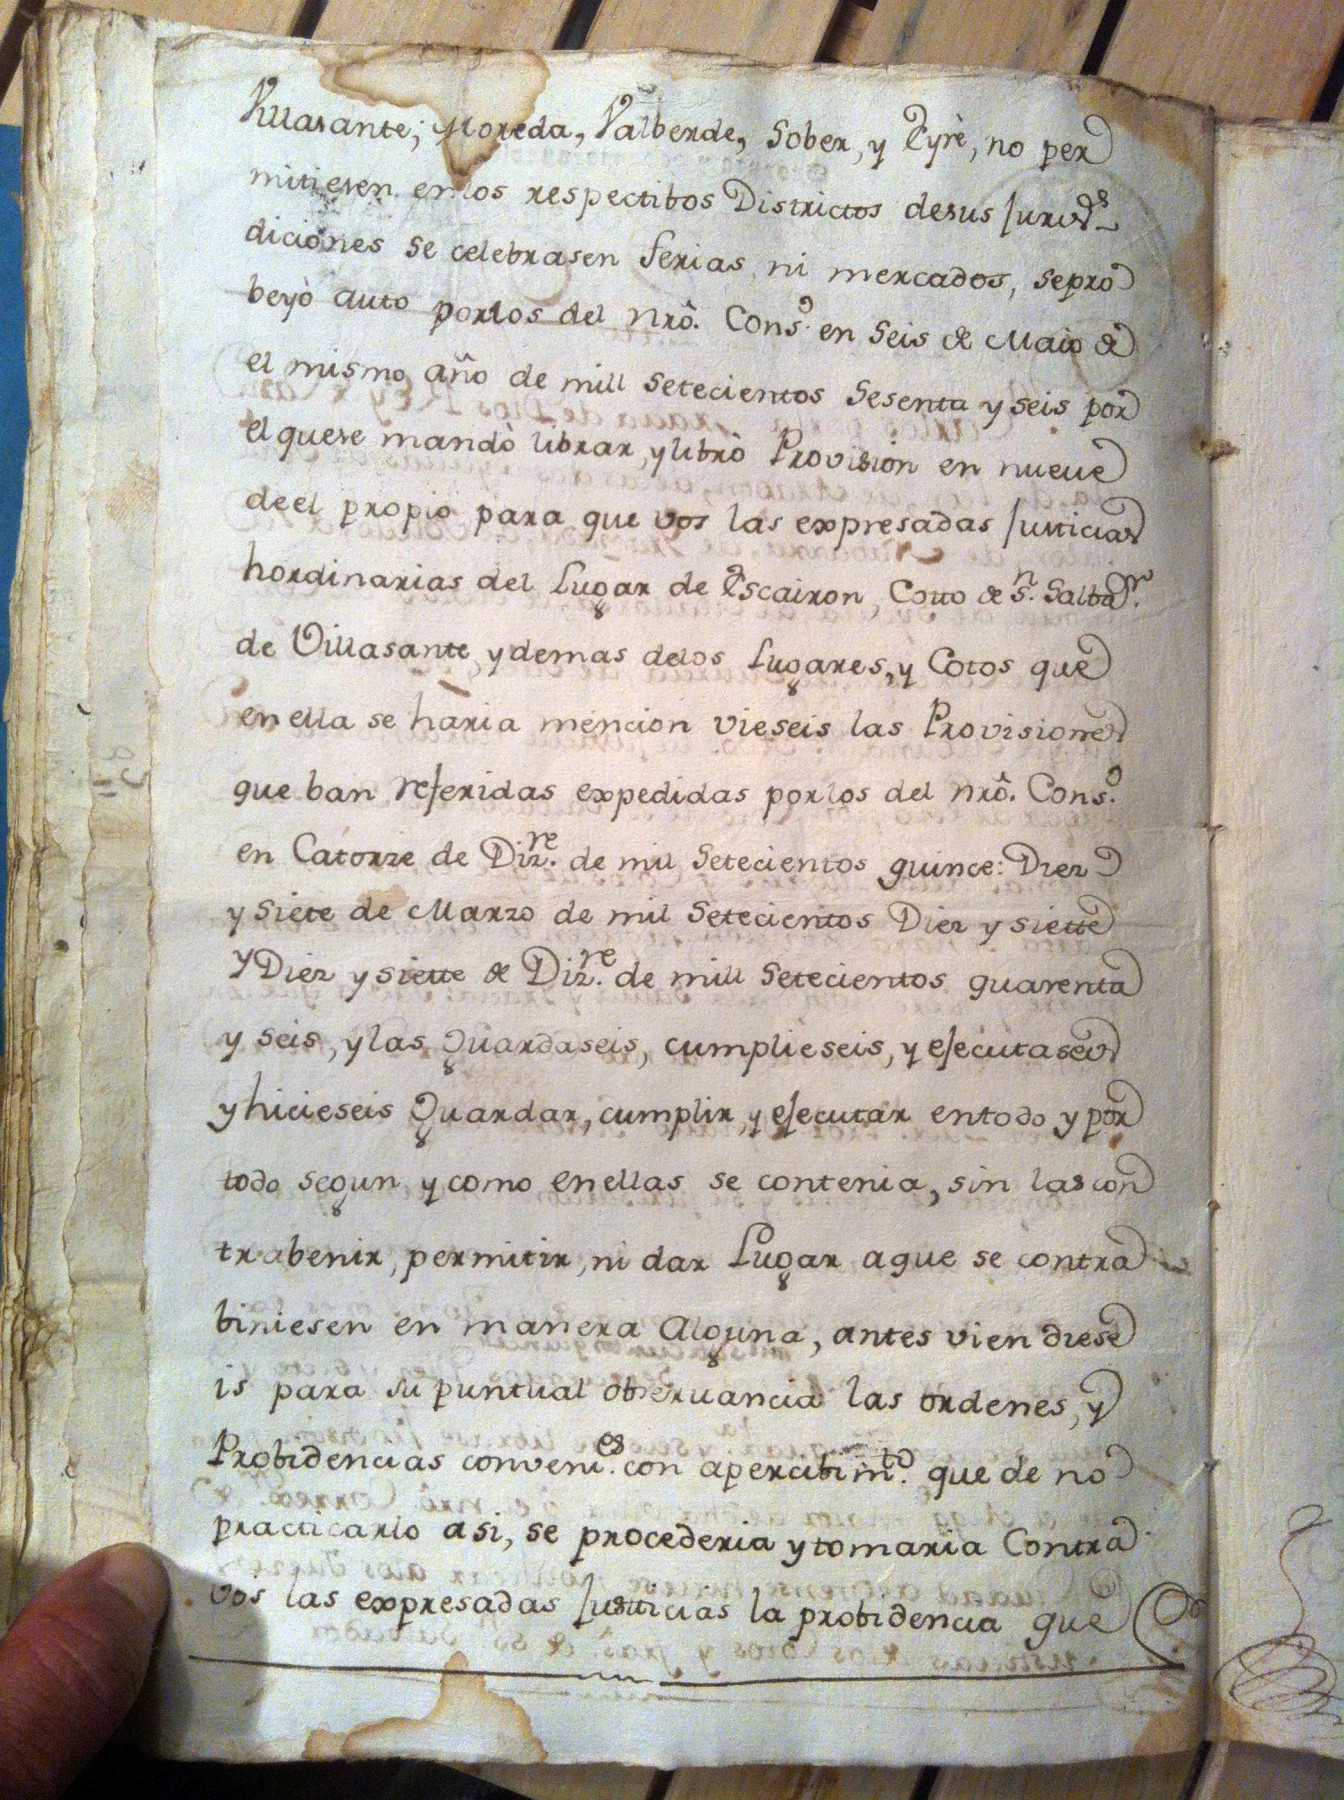 Villasante, Moreda, Valberde, Sober, y Eyrè, no per
mitiesen enlos respectibos Districtos desus Jurisds
diciones se celebrasen ferias ni mercados, sepro
beyò auto porlos del nrô. Conso. en Seis de Maio de
el mismo año de mill Setecientos Sesenta y seis por
el quese mandò librar, y librò Provision en nueve
deel propio para que vos las expresadas Justicias
hordinarias del Lugar de Escairon, Cotto de Sn. Salbar.
de Villasante, y demas delos Lugares, y Cotos que
en ella se haria mencion vieseis las Provisiones
que ban referidas expedidas porlos del nrô. Conso.
en Catorze de Dizre. de mil Setecientos quince: Diez
y Siete de Marzo de mil Setecientos Diez y siette
Y Diez y siette de Dizre. de mill Setecientos quarenta
y seis, y las Guardaseis, cumplieseis, y ejecutaseis
y hicieseis Guardar, cumplir, y ejecutar entodo y por
todo segun y como enellas se contenia, sin las con
trabenir, permitir, ni dar Lugar a que se contra
biniesen en manera Alguna, antes vien diese
is para su puntual obseruancia las ordenes, y
Probidencias convenies. con apercibimto. que de no
practicarlo asi, se procederia y tomaria Contra
vos las expresadas Justicias la probidencia que